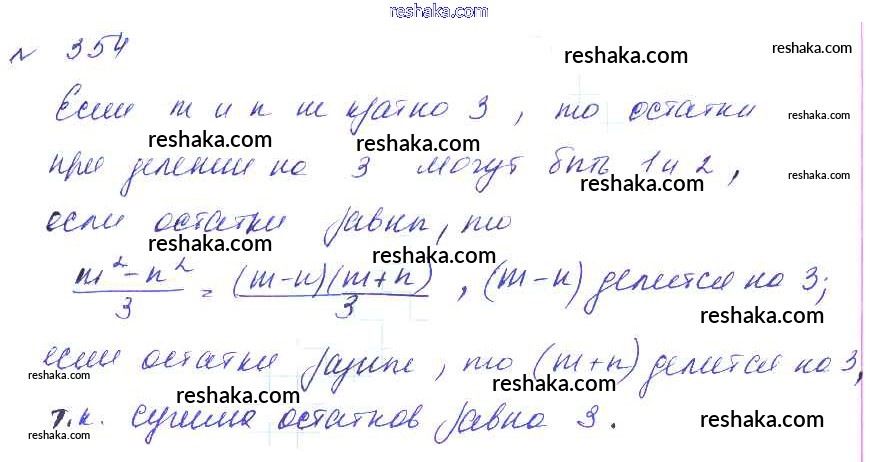 reshaka.com
№ 354
reshaka.com reshaka.com
Если m и n не кратно 3, то остатки
reshaka.com reshaka.com reshaka.com
при делении на 3 могут быть 1 и 2,
reshaka.com reshaka.com
если остатки равны, то
reshaka.com reshaka.com
(m² – n²)/3 = (m–n)(m+n)/3, (m–n) делится на 3;
reshaka.com
если остатки разные, то (m+n) делится на 3,
reshaka.com reshaka.com reshaka.com
т.к. сумма остатков равна 3.
reshaka.com reshaka.com